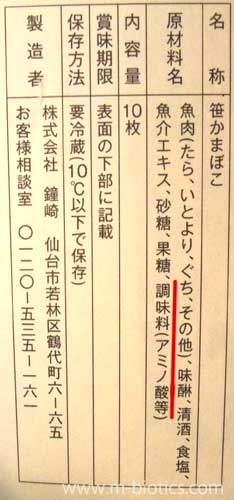 名称 笹かまぼこ
原材料名 魚肉(たら、いとより、ぐち、その他)、味醂、清酒、食塩、
魚介エキス、砂糖、果糖、調味料(アミノ酸等)
内容量 10枚
賞味期限 表面の下部に記載
保存方法 要冷蔵(10℃以下で保存)
製造者 株式会社 鐘崎 仙台市若林区鶴代町六−六五
お客様相談室 〇一二〇−五三五−一六一
www.m-biotics.com